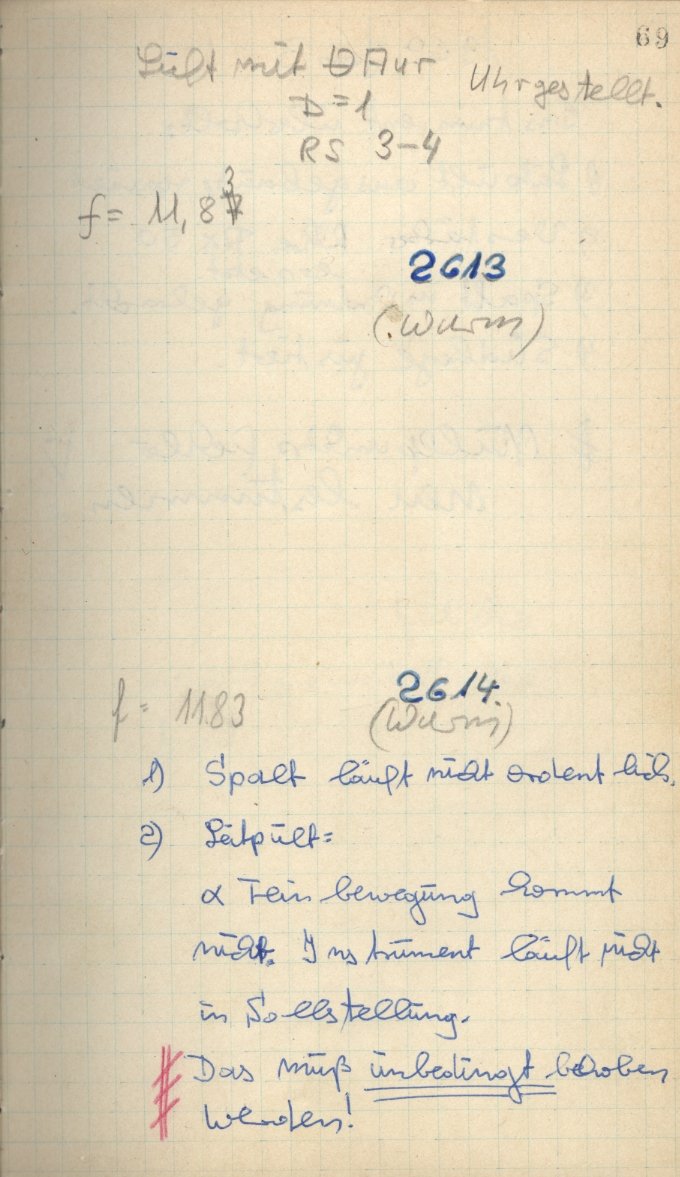 69
Luft mit ϑ Aur Uhr gestellt.
D = 1
RS 3-4
f = 11,83
2613
(Wurm)
2614.
f = 11.83
(Wurm)
1) Spalt läuft nicht ordentlich.
2) Leitpült:
α Feinbewegung kommt
nicht. Instrument läuft nicht
in Sollstellung.
Das muß unbedingt behoben
werden!